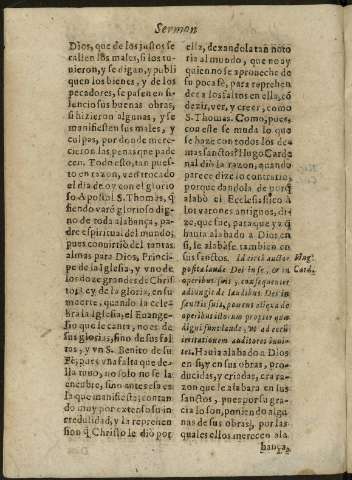 Sermon
Dios, que de los justos se
callen los males, si los tu-
uieron, y se digan, y publi
quen los bienes, y de los
pecadores, se passen en si-
lencio sus buenas obras,
si hizieron algunas, y se
manifiesten sus males, y
culpas, por donde mere-
cieron las penas que pade
cen. Todo esto, tan pues-
to en razon, veo trocado
el dia de oy con el glorio
so Apostol S. Thomas, q̃
siendo varõ glorioso dig-
no de toda alabança, pa-
dre espiritual del mundo,
pues conuirtiò del tantas
almas para Dios, Princi-
pe de la Iglesia, y vno de
los doze grandes de Chris
to, Rey de la gloria, en su
muerte, quando la cele-
bra la Iglesia, el Euange-
lio que le canta, no es de
sus glorias, sino de sus fal
tas, y vn S. Benito de su
Fè, pues vna falta que de-
lla tuuo, no solo no se la
encubre, sino antes essa es
la que manifiesta; contan
do muy por extenso su in-
credulidad, y la reprehen
sion q̃ Christo le diò por
ella, dexandola tan noto
ria al mundo, que no ay
quien no se aproueche de
su poca fè, para reprehen
der a los faltos en ella, cõ
dezir, ver, y creer, como
S. Thomas. Como, pues,
con este se muda lo que
se haze con todos los de
mas santos? Hugo Carde
nal diò la razon, quando
parece dize lo contrario,
porque dandola de porq̃
alabò el Ecclesiastico a
los varones antiguos, di-
ze, que fue, para que ya q̃
hauia alabado a Dios en
si, le alabasse tambien en
sus santos. Id circò auctor
post a laude Dei in se, & in
operibus suis, consequenter
adiungit de laudibus Dei in
sanctis suis, ponens aliqua de
operibus istorum propter quæ
digni sunt laude, vt ad eorũ
imitationem auditores inui-
tet. Hauia alabado a Dios
en si, y en sus obras, pro-
ducidas, y criadas, era ra-
zon que le alabara en sus
santos, pues por su gra-
cia lo son, poniendo algu
nas de sus obras, por las
quales ellos merecen ala
bança,
Hug.
Card.